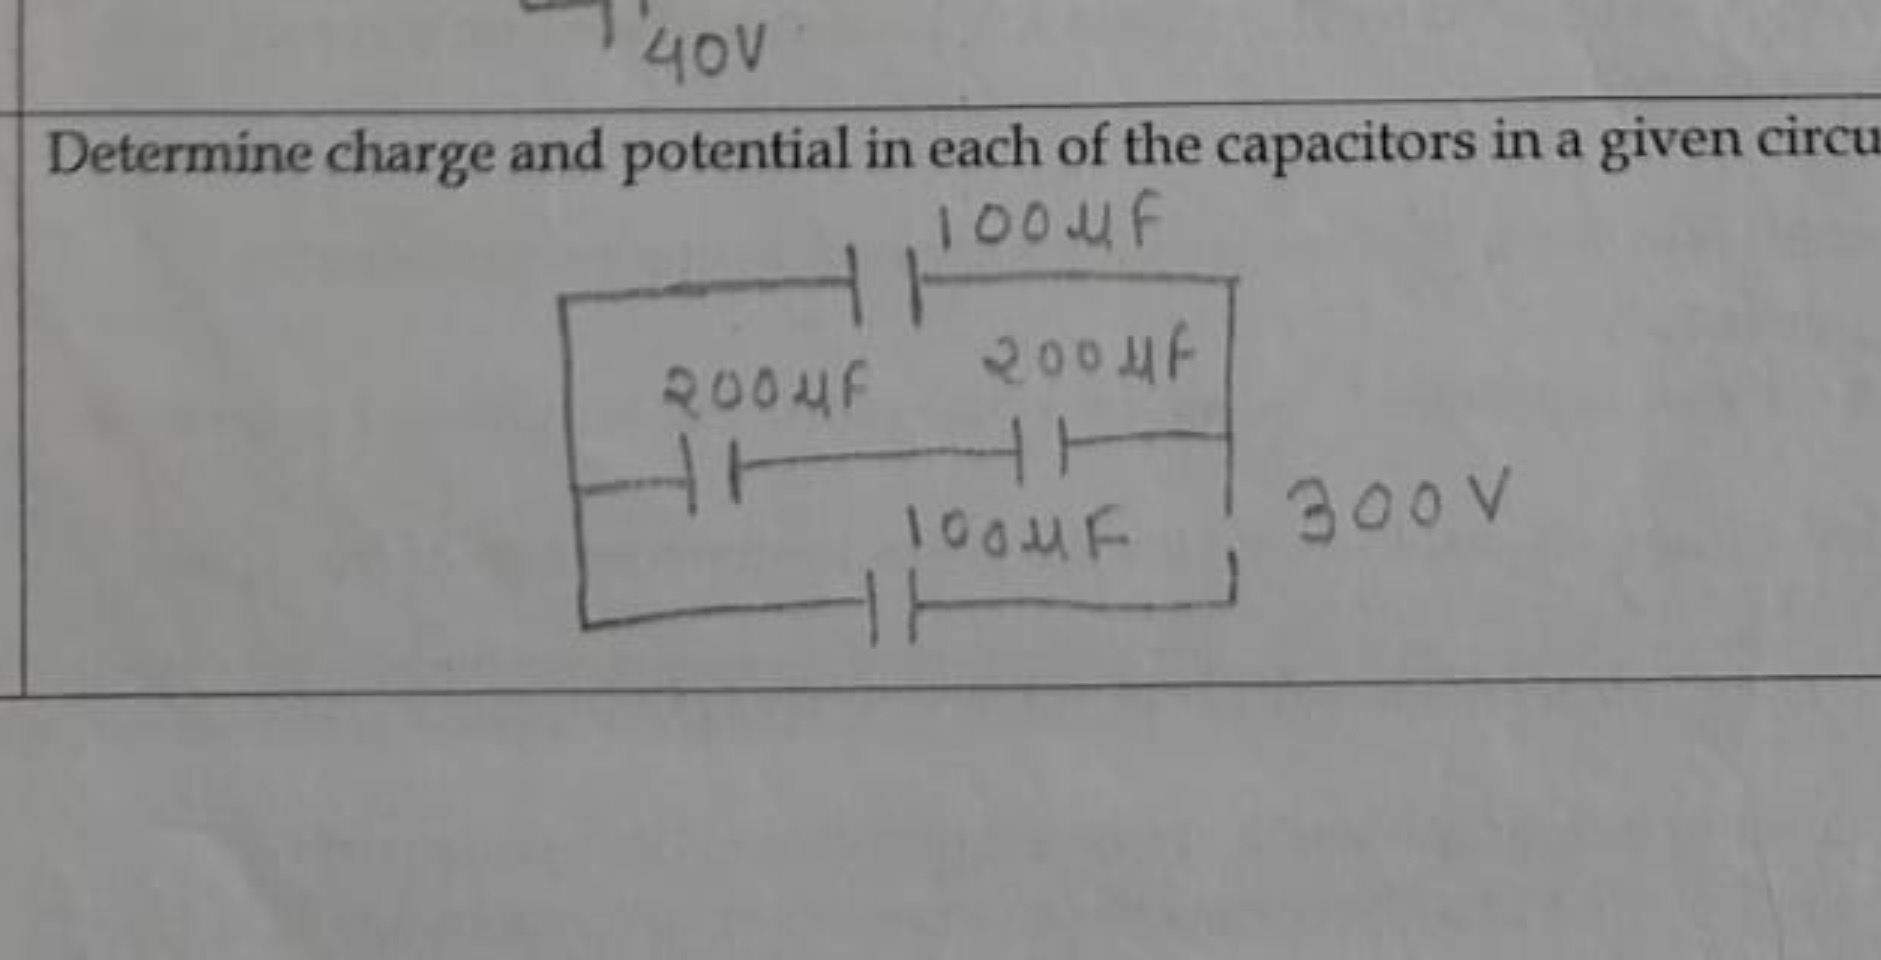 40V
Determine charge and potential in each of the capacitors in a given circu
100μF
200μF
200μF
100μF
300V